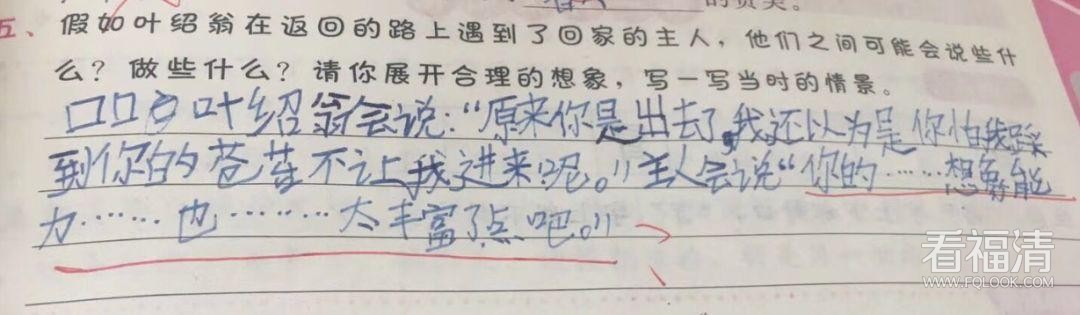 的负关。
五、假如叶绍翁在返回的路上遇到了回家的主人，他们之间可能会说些什
么？做些什么？请你展开合理的想象，写一写当时的情景。
口口口叶绍翁会说：“原来你是出去了，我还以为是你怕我踩
到你的苍苔不让我进来呢。”主人会说“你的……想象能
力……也………太丰富了点吧。”
看福清
WWW.FQLOOK.COM